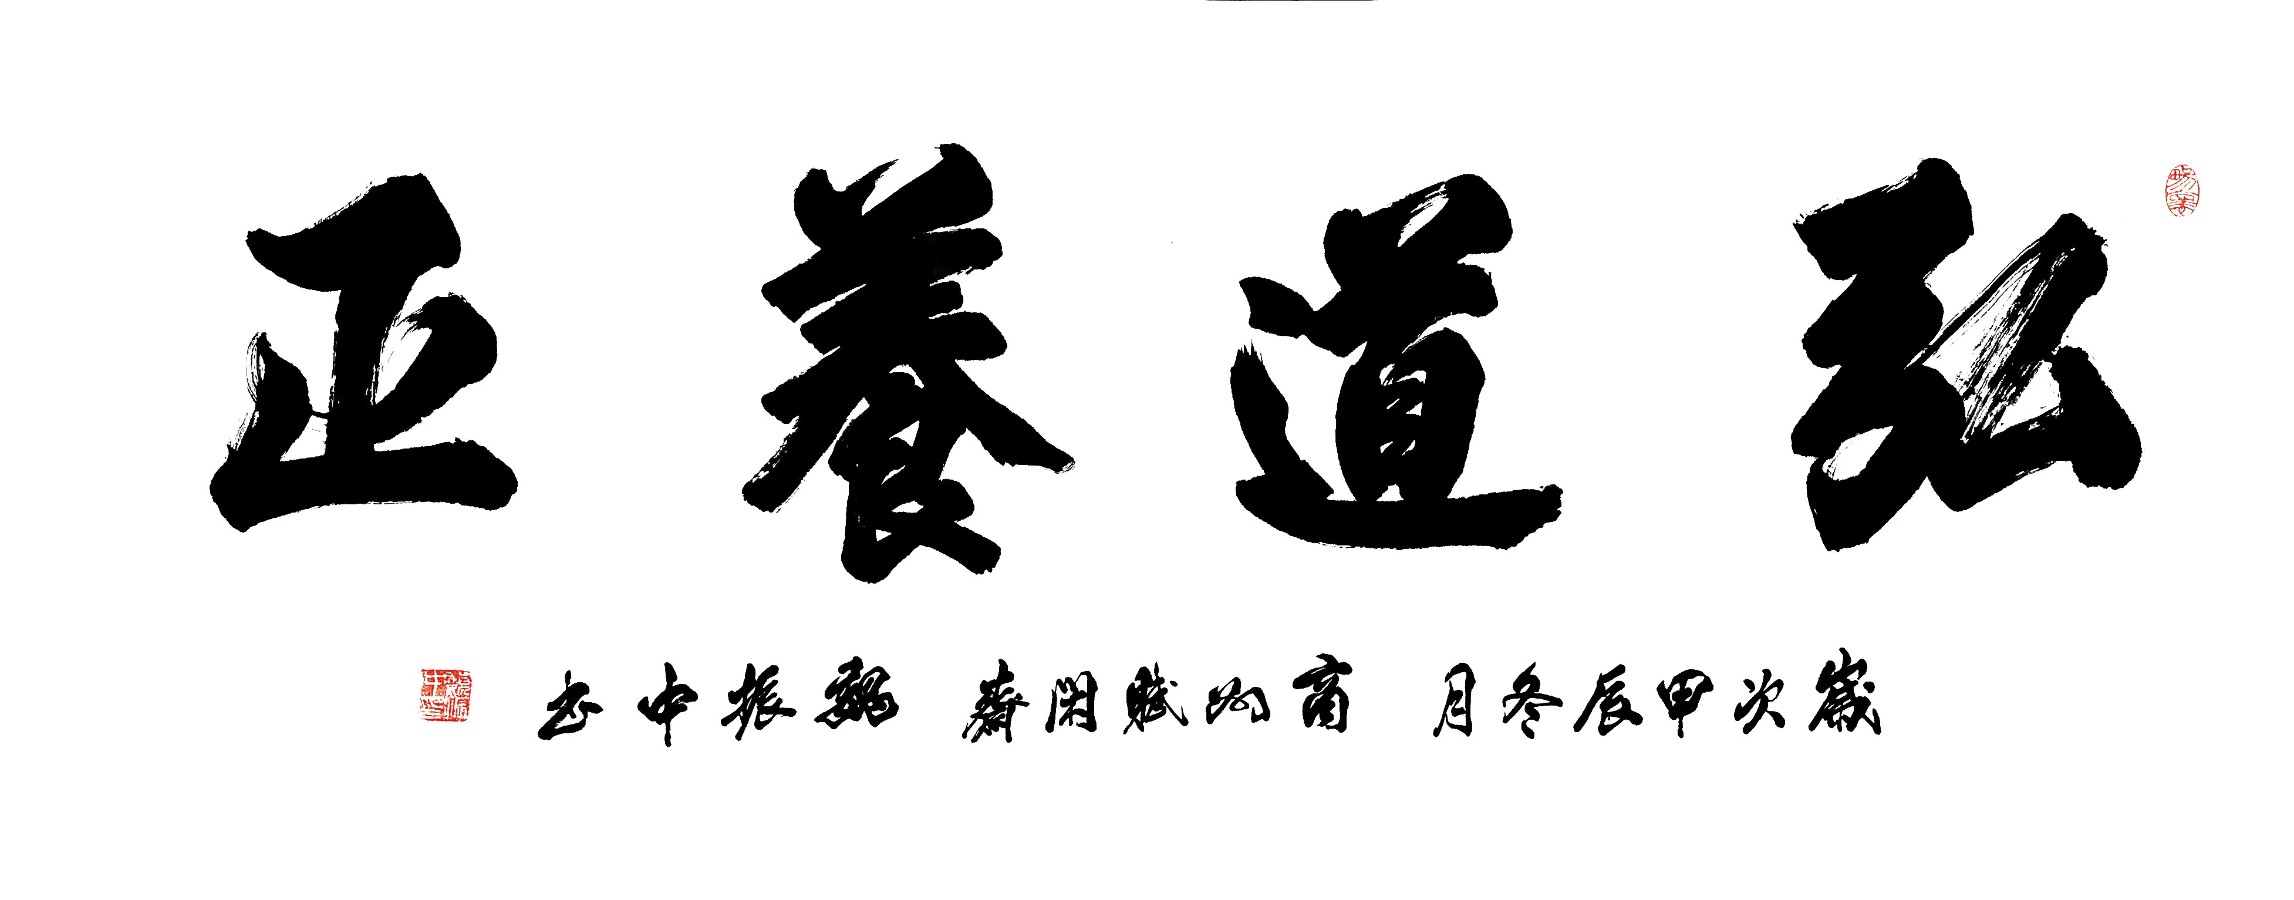 弘道養正
歲次甲辰冬月 商州賦閑齋 魏振中书